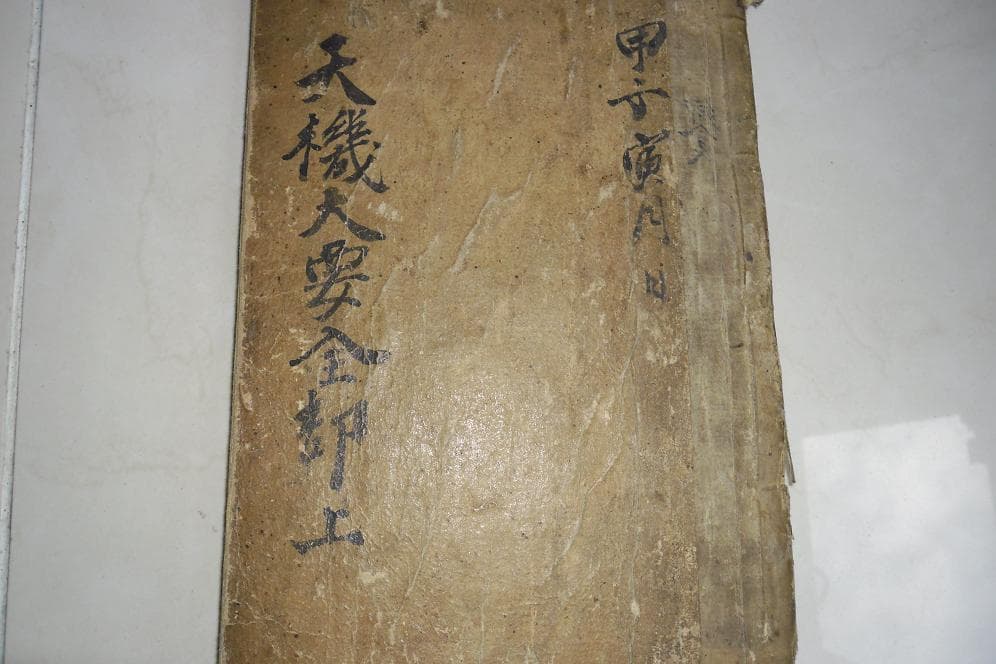 甲子寅月 日
天機大要全部上